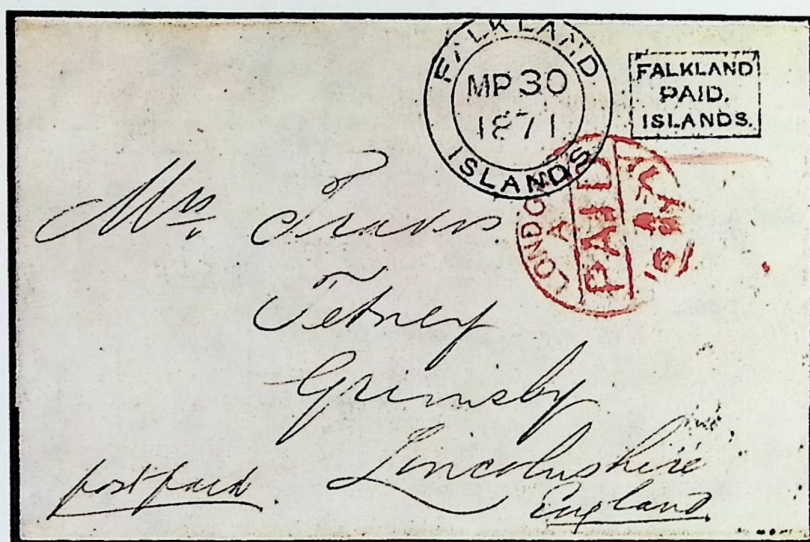 FALKLAND ISLANDS
MP 30
1871
FALKLAND
PAID.
ISLANDS.
LONDO
PAID
Mrs. Travis
Tetney
Grimsby
Lincolnshire
England
post paid.